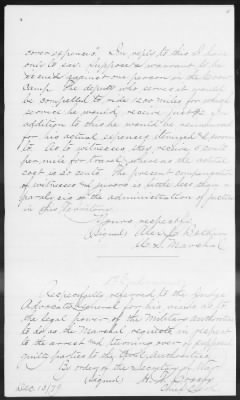 cover expenses". In reply to this I have
only to say. Suppose a warrant to be
issued against one person in the
Camp. The deputy who serves it would
be compelled to ride 1200 miles for which
service he would receive
addition to this he would be reimbursed
for his actual expenses itemized & sworn
to. As to witnesses they receive 5 cents
per mile for travel, whereas the actual
cost is 20 cents. The present compensation
of witnesses and jurors is little less than a
paralysis on the administration of justice
in this territory.
Yours respectfly
(signed)
U.S. Marshal
Respectfully referred to the Judge
Advocate General for his views as to
the legal power of the Military authorities
to do as the Marshal requests in respect
to the arrest and turning over of supposed
guilty parties to the Civil Authorities
By order of the Secretary of War
(signed) H. T. Crosby
Chief Clerk
Dec. 13/79